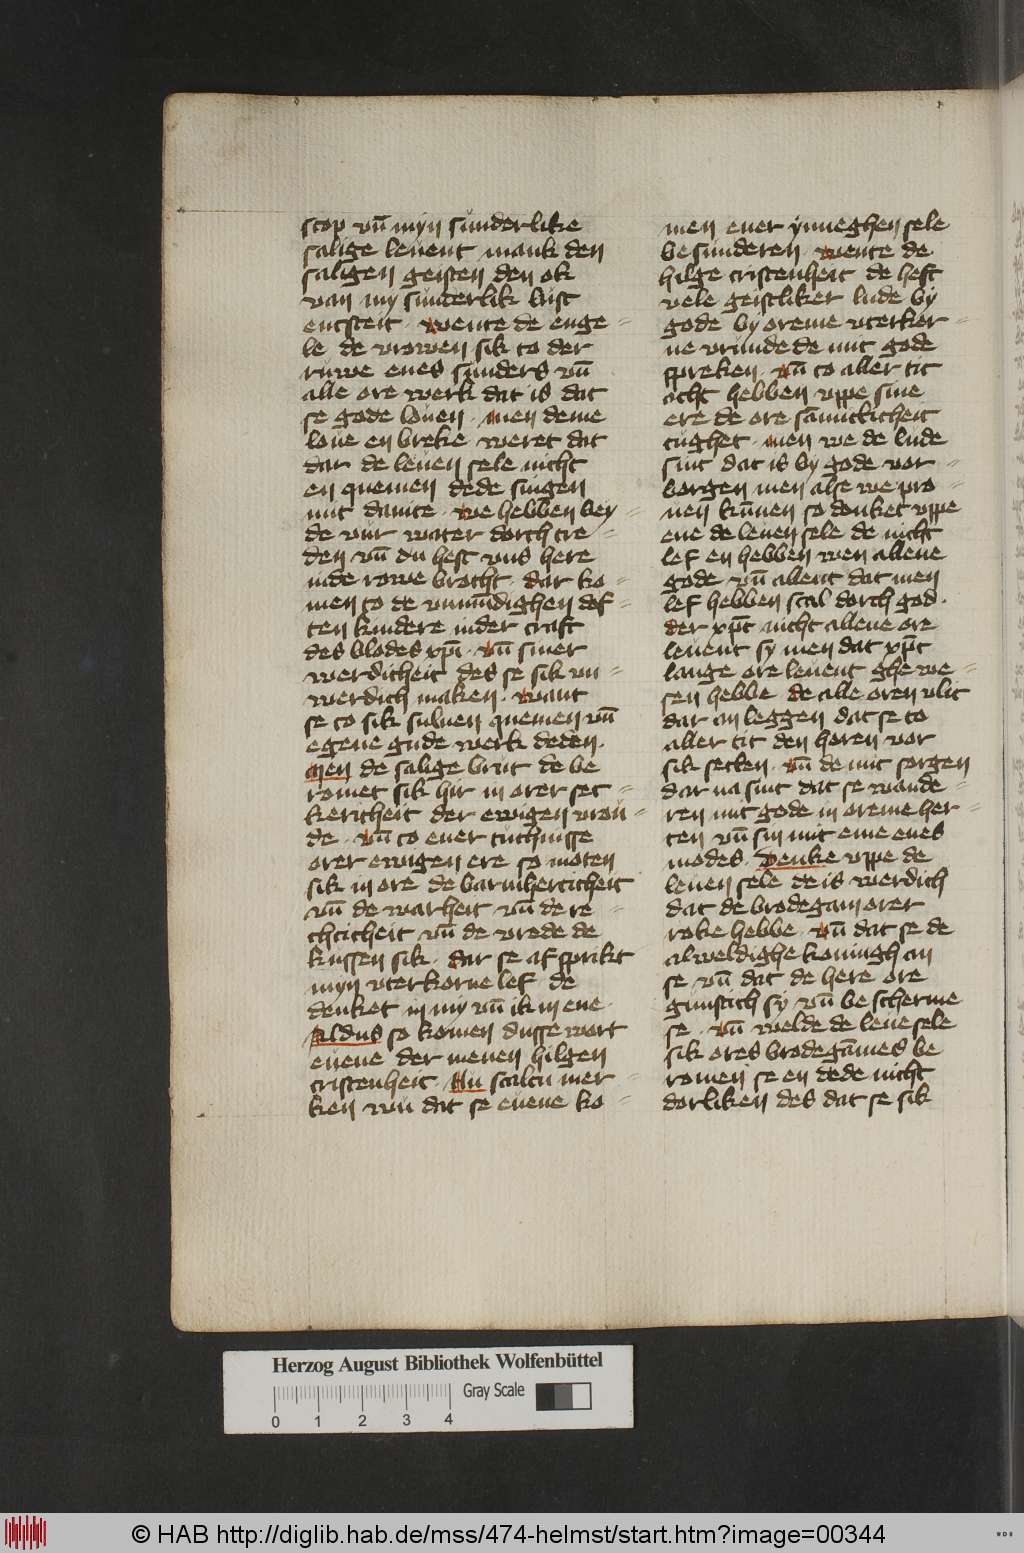 scop vn̄ myn sunderlike
salige leuent mank den
saligen geisten den ok
van my sunderlik lust
entsteit · wente de enge=
le de vrowen sik to der
ruwe enes sunders vn̄
alle ore werk dat is dat
se gode louen · men deme
loue en breke weret dat
dar de leuen sele nicht
en quemen dede singen
mit dauite · we hebben bey=
de vur water dorch tre=
den vn̄ du hest vns here
inde rowe brocht dar ko=
men to de vnmūdighen def=
ten kindere inder craft
des blodes xp̄i · vn̄ siner
werdicheit des se sik vn=
werdich maken · want
se to sik suluen quemen vn̄
egene gude werk deden ·
men de salige brut de be
romet sik hir in orer sec=
kericheit der ewigen vrou=
de · vn̄ to ener tuchnisse
orer ewigen ere so moten
sik in ore de barmherticheit
vn̄ de warheit vn̄ de re=
chticheit vn̄ de vrede de
kussen sik · dar se af sprikt
myn vterkorne lef de
denket in my vn̄ ik in ene
Aldus so komen dusse wort
euene der menen hilgen
cristenheit Nu scaltu mer=
ken wu dat se euene ko=
men ener ynneghen sele
besunderen · wente de
hilge cristenheit de heft
vele geistliker lude by
gode by oreme vterkor=
ne vrunde de mit gode
spreken · vn̄ to aller tit
acht hebben vppe sine
ere de ore sāmitlicheit
tughet · men we de lude
sint dat is by gode vor=
borgen men alse we pro=
uen kūnen so denket vppe
ene de leuen sele de nicht
lef en hebben wen allene
gode vn̄ allent dat men
lef hebben scal dorch god ·
der xp̄t nicht allene ore
leuent sy men dat xp̄t
lange ore leuent ghe we=
sen hebbe de alle oren vlit
dar an leggen dat se to
aller tit den horen vor
sik setten · vn̄ de mit sorgen
dar na sint dat se wande=
ren mit gode in oreme her=
ten vn̄ sin mit eme enes
modes · Denke vppe de
leuen sele de is werdich
dat de brodegam orer
roke hebbe · vn̄ dat se de
alweldighe koningh an
se vn̄ dat de here ore
gunstich sy vn̄ bescherme
se · vn̄ welde de leue sele
sik ores brodegāmes be
romen se en dede nicht
dorliken des dat se sik
Herzog August Bibliothek Wolfenbüttel
0 1 2 3 4
Gray Scale
© HAB http://diglib.hab.de/mss/474-helmst/start.htm?image=00344